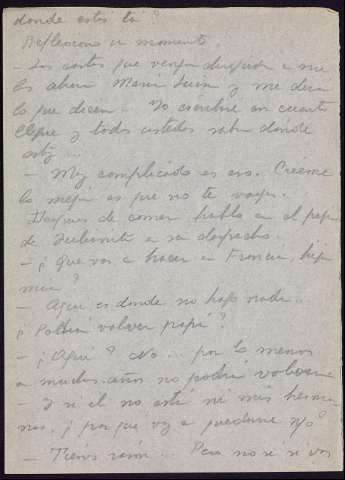 donde estás tú?
Reflexiono un momento
– Las cartas que vengan después a mi
las abra María Luisa y me dira
lo que dicen... Yo escribiré en cuanto
llegue y todos ustedes saben donde
estoy...
– Muy complicado es eso. Créeme
lo mejor es que no te vayas.
Después de comer hablo con el papá
de en su despacho.
– ¿Que vas a hacer en Francia, hija
mia?
– Aqui es donde no hago nada...
¿Podria volver papá?
– ¿Aqui? No... por lo menos
a muchos años no podria volverme
– Y si el no está ni mis herma
nas, ¿por que voy a quedarme yo?
– Tienes razón... Pero no se si vas